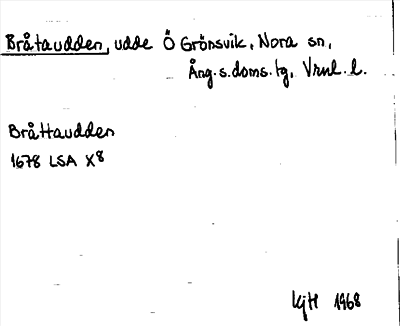 Bråtaudden, udde Ö Grönsvik, Nora sn,
Ång. s. doms. tg, Vrnl. l.
Bråttaudden
1678 LSA X8
KjH 1968